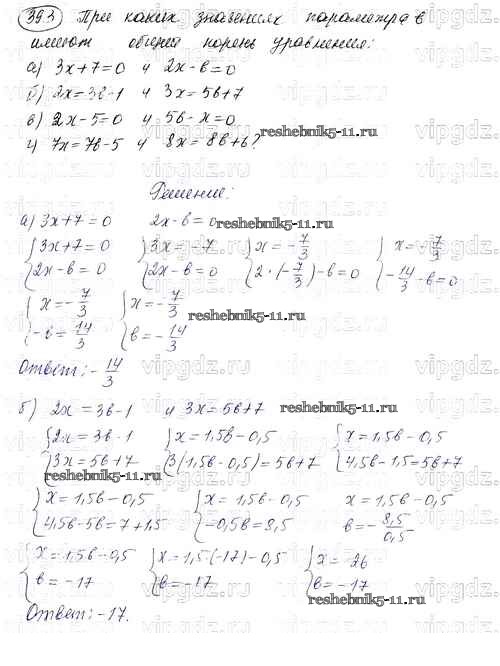 393 При каких значениях параметра в
имеют общий корень уравнения:
а) 3x+7=0 и 2x-в=0
б) 2x=3в-1 и 3x=5в+7
в) 2x-5=0 и 5в-x=0
г) 7x=7в-5 и 8x=8в+6?
reshebnik5-11.ru
Решение:
а) 3x+7=0 2x-в=0
reshebnik5-11.ru
{3x+7=0 {3x=-7 {x=-7/3 {x=-7/3
{2x-в=0 {2x-в=0 {2·(-7/3)-в=0 {-14/3-в=0
{x=-7/3 {x=-7/3
{-в=14/3 {в=-14/3
reshebnik5-11.ru
Ответ: -14/3
б) 2x=3в-1 и 3x=5в+7
reshebnik5-11.ru
{2x=3в-1 {x=1,5в-0,5 {x=1,5в-0,5
{3x=5в+7 {3(1,5в-0,5)=5в+7 {4,5в-1,5=5в+7
reshebnik5-11.ru
{x=1,5в-0,5 {x=1,5в-0,5 x=1,5в-0,5
{4,5в-5в=7+1,5 {-0,5в=8,5 в=-8,5/0,5
{x=1,5в-0,5 {x=1,5·(-17)-0,5 {x=-26
{в=-17 {в=-17 {в=-17
reshebnik5-11.ru
Ответ: -17.
vipgdz.ru